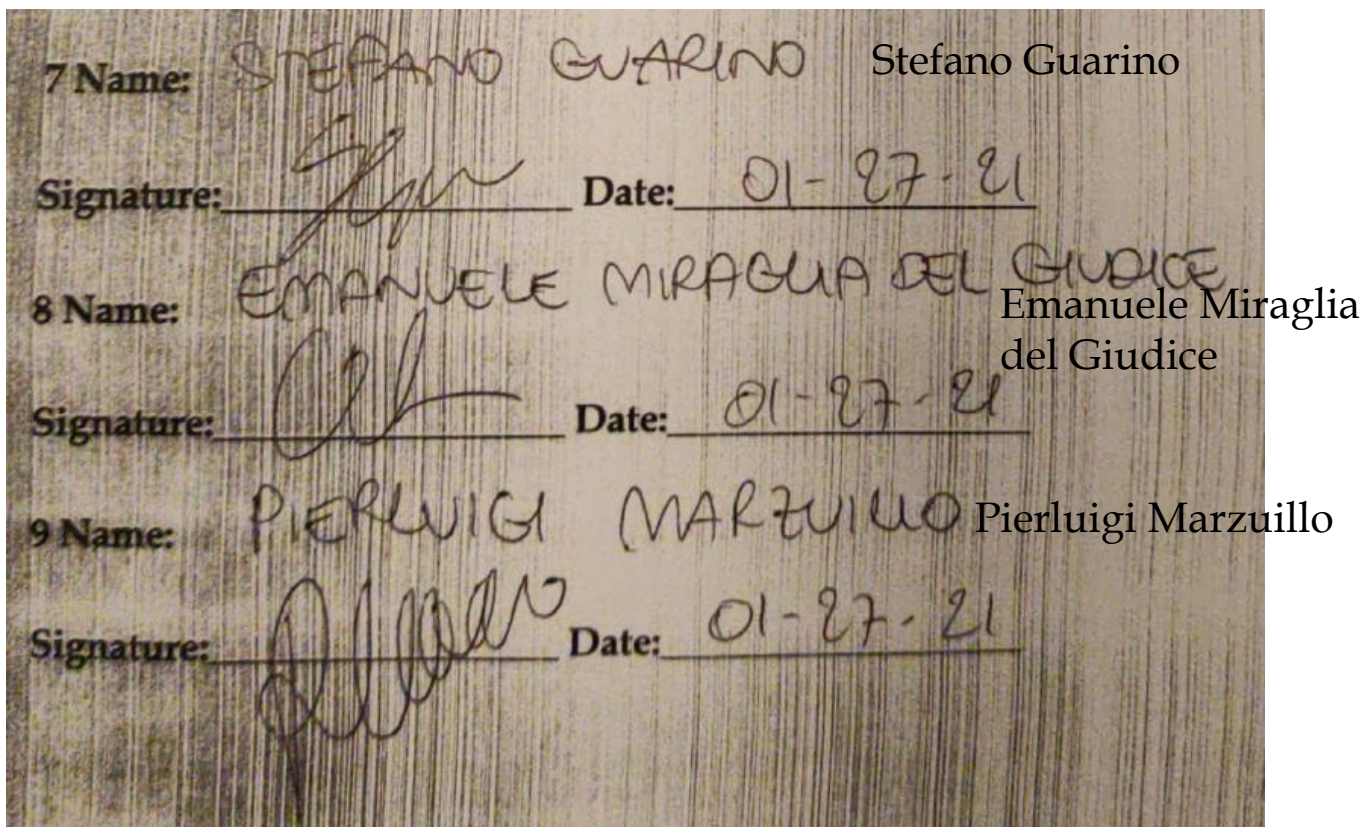 7 Name: STEFANO GUARINO Stefano Guarino
Signature: Date: 01-27-21
8 Name: EMANUELE MIRAGLIA DEL GIUDICE
Emanuele Miraglia
del Giudice
Signature: Date: 01-27-21
9 Name: PIERLUIGI MARZUILLO Pierluigi Marzuillo
Signature: Date: 01-27-21